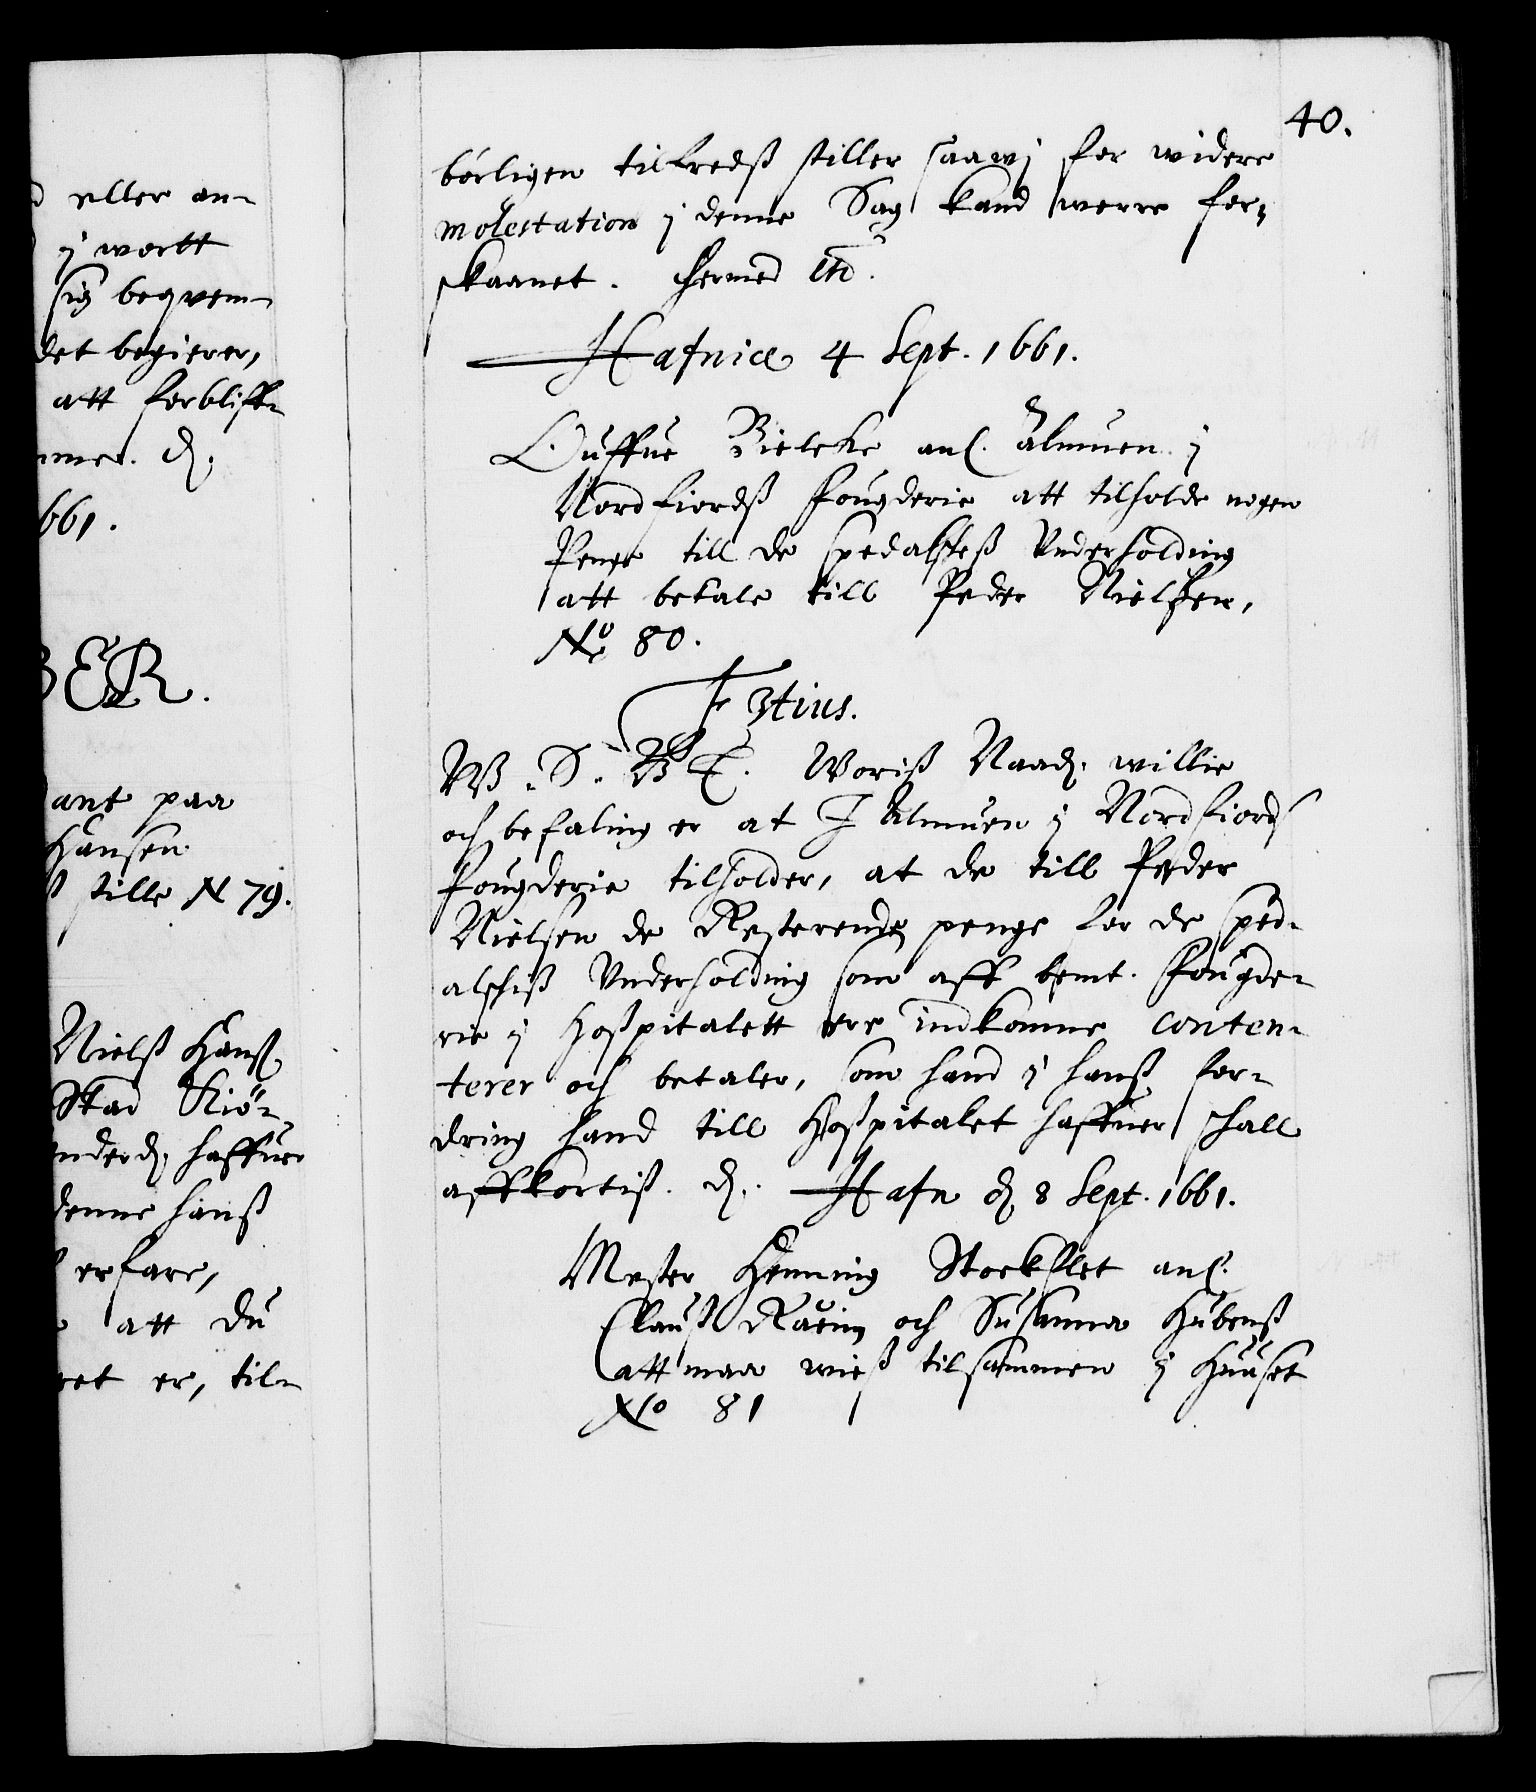 eller an-
j wortt
sig beqvem-
det begierer,
att forbliff-
mmer. ꝛ.
661.
BER.
ant paa
Hansen
stille N 79.
Nielß Hanß.
Stad Kiö-
haffuer
denne hanß
erfare,
att du
ret er, til-
40.
börligen tilfredß stiller saa wj for widere
molestation j denne Sag kand werre for-
skaanet. Hermed etc.
Hafniæ 4 Sept. 1661.
Ouffue Bielcke anl. almuen j
Nordfiordß fougderie att tilholde nogen
Penge till de spedalskeß Underholding
att betale till Peder Nielßen,
No 80.
F 3tius.
W. S. G. T. Woriß Naad. willie
och befaling er at I Almuen j Nordfiords
fougderie tilholder, at de till Peder
Nielsen de Resterende penge for de sped-
alskiß Underholding som aff bemt. fougde-
rie j Hoßpitalett ere indkomne conten-
terer och betaler, som hand j hanß for-
dring hand till Hoßpitalet haffuer schall
affkortiß. ꝛ. Hafn d 8 Sept. 1661.
Mester Henning Stockflet anl.
Clauß Raein och Susanna Hübenß
att maa wieß tilsammen j Huuset
No 81